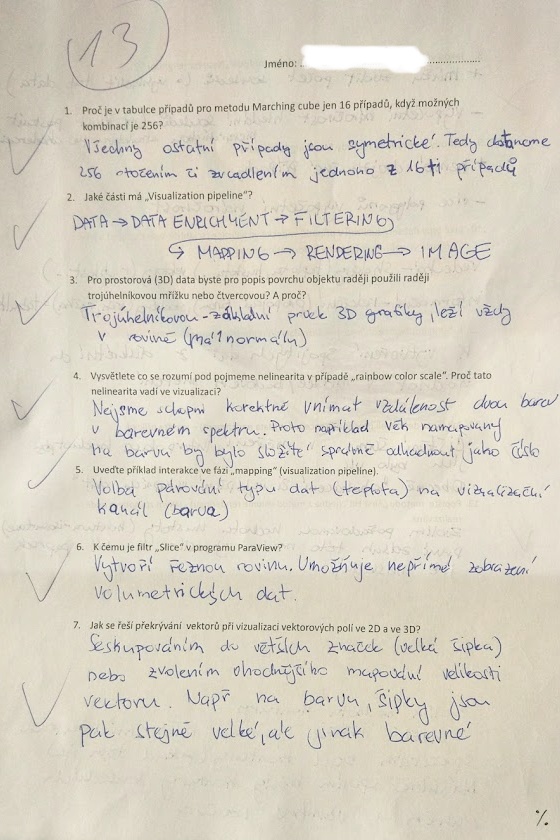 13
Jméno:
1. Proč je v tabulce případů pro metodu Marching cube jen 16 případů, když možných
kombinací je 256?
Všechny ostatní případy jsou symetrické. Tedy dostaneme
256 otočením či zrcadlením jednoho z 16ti případů
2. Jaké části má „Visualization pipeline"?
DATA → DATA ENRICHMENT → FILTERING
→ MAPPING → RENDERING → IMAGE
3. Pro prostorová (3D) data byste pro popis povrchu objektu raději použili raději
trojúhelníkovou mřížku nebo čtvercovou? A proč?
Trojúhelníkovou - základní prvek 3D grafiky, leží vždy
v rovině (má 1 normálu)
4. Vysvětlete co se rozumí pod pojmeme nelinearita v případě „rainbow color scale". Proč tato
nelinearita vadí ve vizualizaci?
Nejsme schopni korektně vnímat vzdálenost dvou barev
v barevném spektru. Proto například věk namapovaný
na barvu by bylo složité správně odhadnout jako číslo
5. Uveďte příklad interakce ve fázi „mapping" (visualization pipeline).
Volba párování typu dat (teplota) na vizualizační
kanál (barva)
6. K čemu je filtr „Slice" v programu ParaView?
Vytvoří řeznou rovinu. Umožňuje nepřímé zobrazení
volumetrických dat.
7. Jak se řeší překrývání vektorů při vizualizaci vektorových polí ve 2D a ve 3D?
Seskupováním do větších značek (velká šipka)
nebo zvolením vhodnějšího mapování velikosti
vektoru. Např na barvu, šipky jsou
pak stejně velké, ale jinak barevné